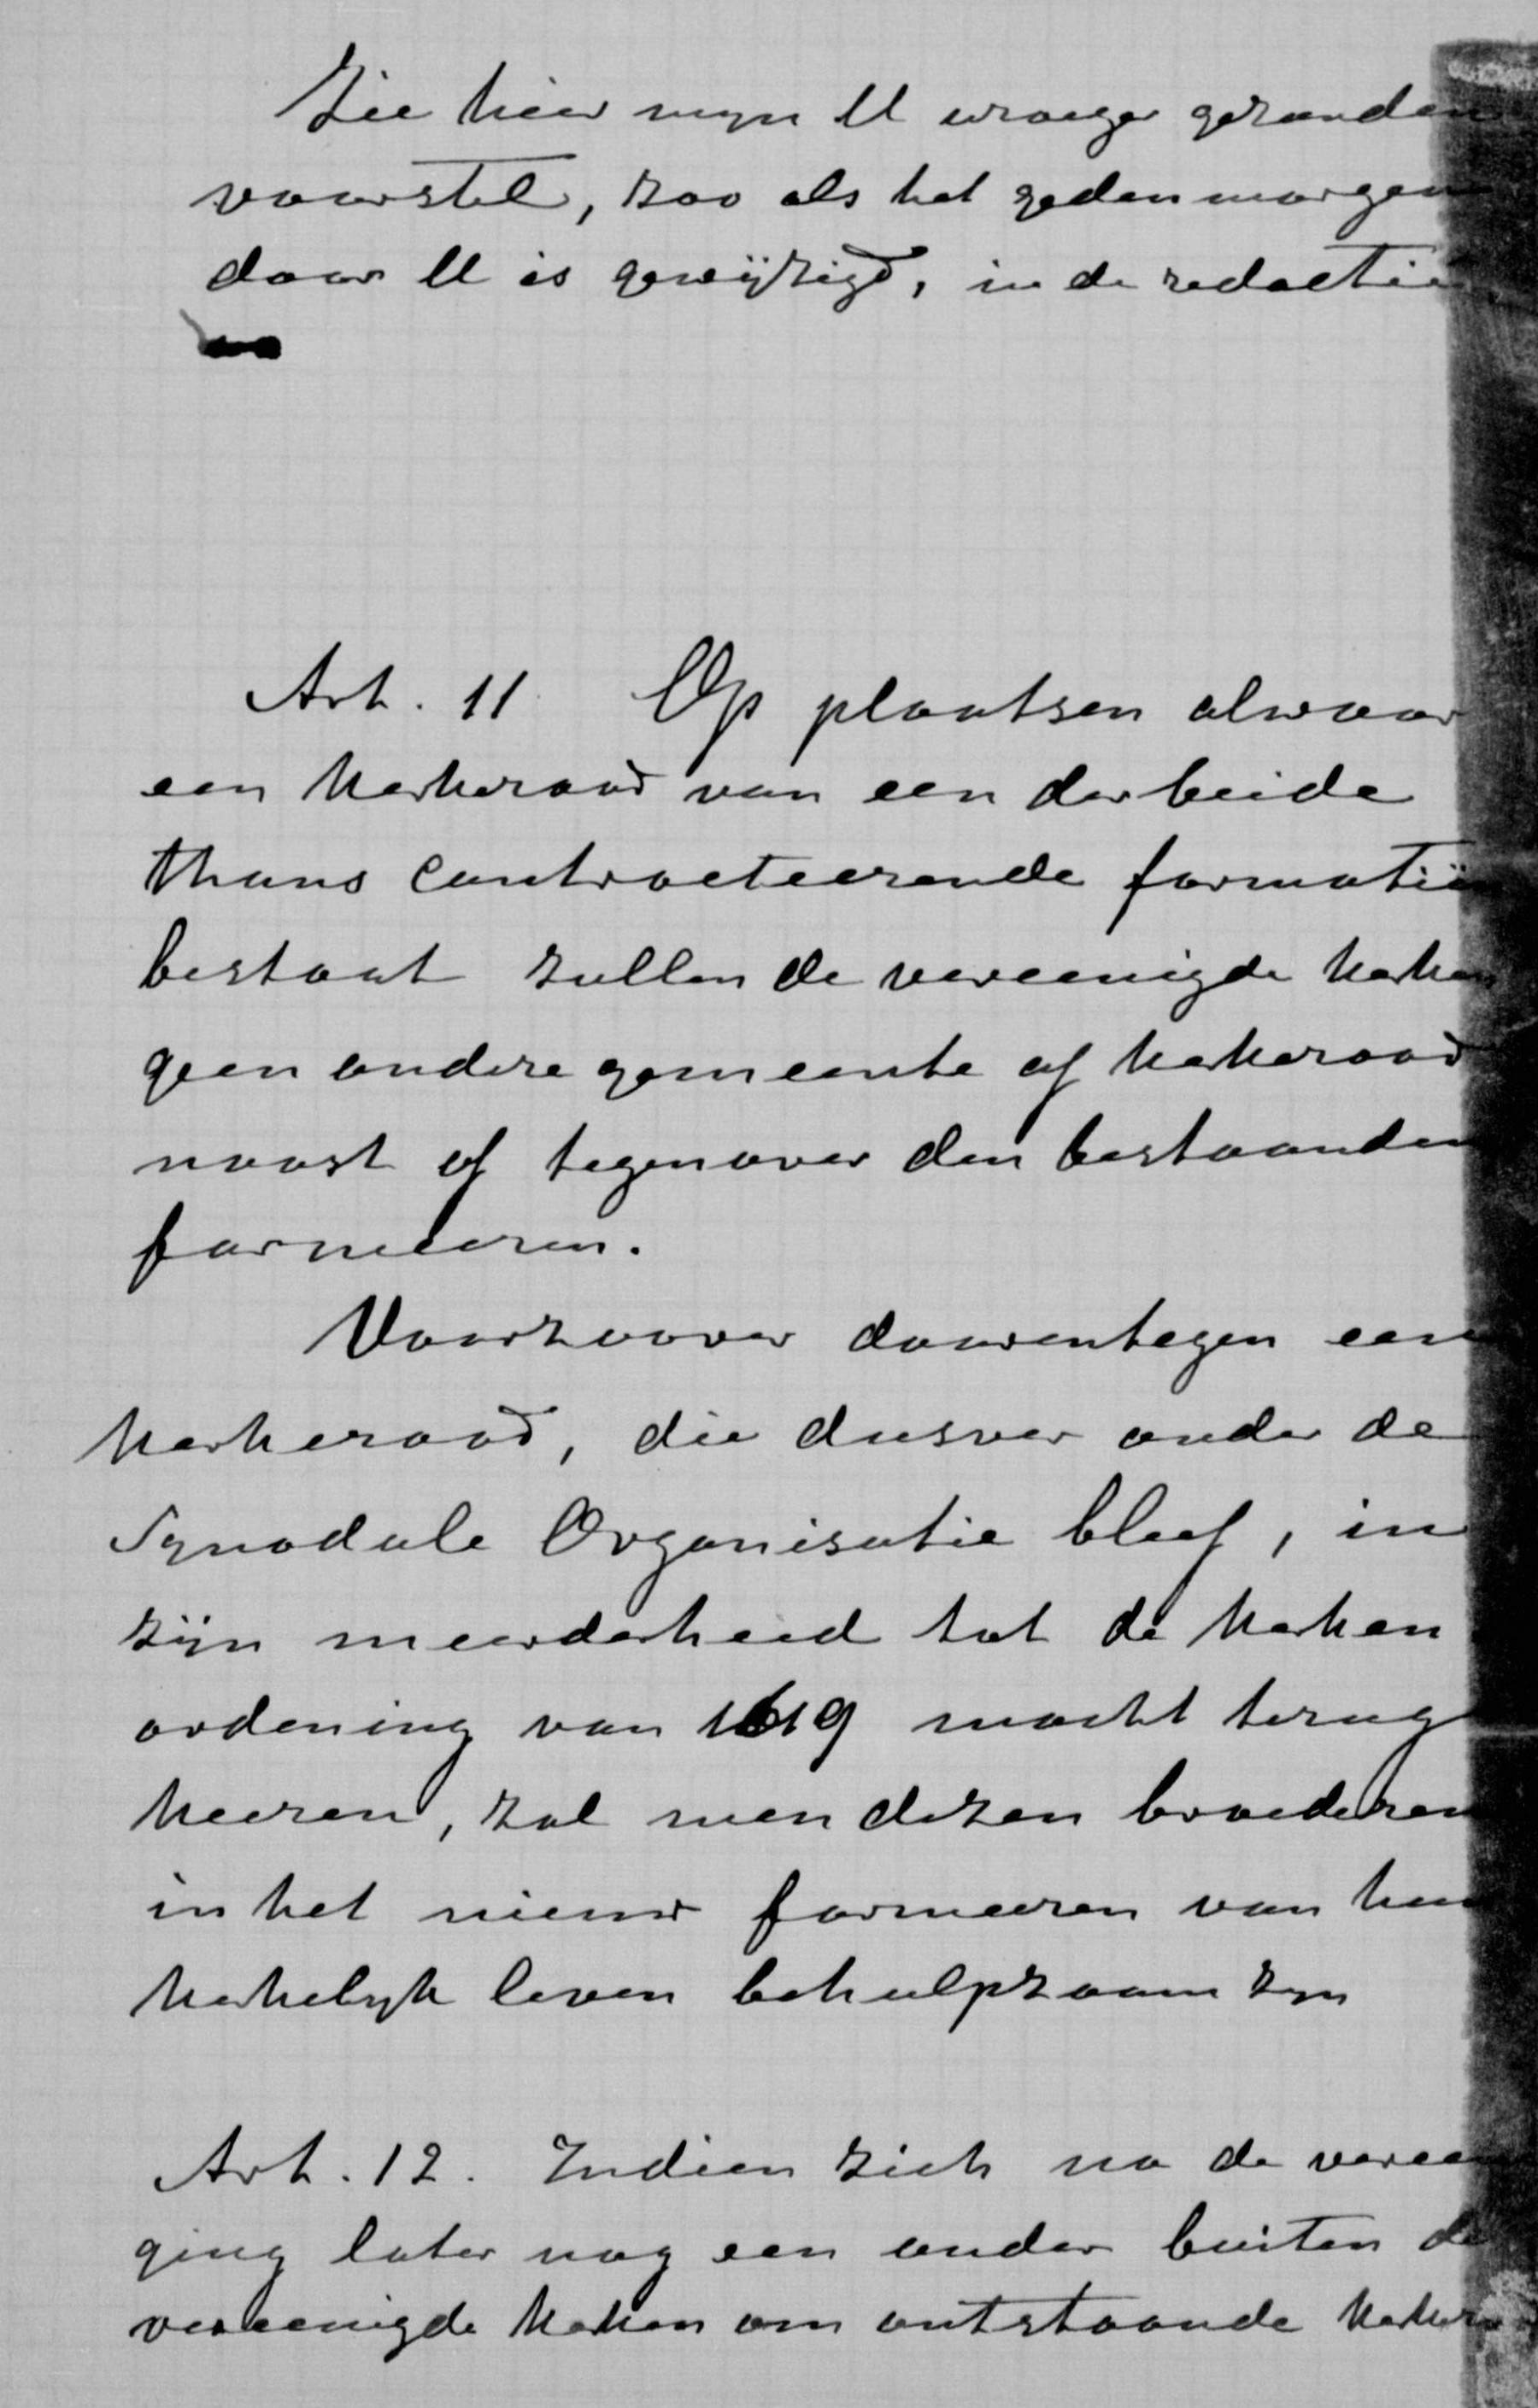 Zie hier mijn U vroeger gezonden
voorstel, zoo als het heden morgen
door U is gewijzigd, in de redactie
Art. 11 Op plaatsen alwaar
een kerkeraad van een der beide
thans contracteerende formatiën
bestaat zullen de vereenigde kerken
geen andere gemeente of kerkeraad
naast of tegenover den bestaanden
formeeren.
Voorzoover daarentegen een
kerkeraad, die dusver onder de
Synodale Organisatie bleef, in
zijn meerderheid tot de kerken
ordening van 1619 mocht terug
keeren, zal men dezen broederen
in het nieuw formeeren van hun
kerkelijk leven behulpzaam zijn
Art. 12. Indien zich na de vereeni
ging later nog een ander buiten de
vereenigde kerken om ontstaande